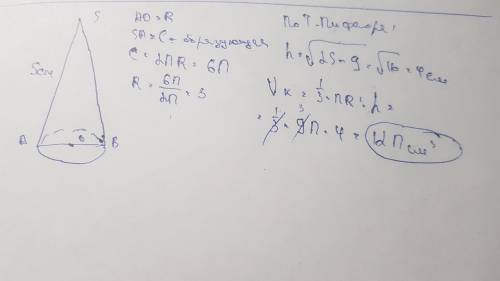 S
5см
A
O
B
AO = R
SA = L - образующая
C = 2ПR = 6П
R = 6П/2П = 3
По Т. Пифагора:
h = √25-9 = √16 = 4 см
Vк = 1/3 · ПR² · h =
= 1/3 · 9П · 4 = 12П см³
3